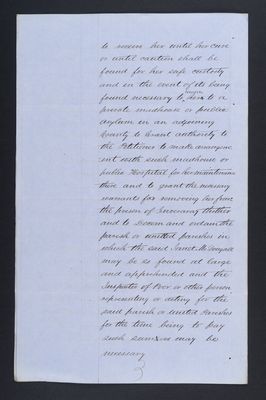 to receive her until her cure
or until caution shall be
found for her safe custody
and in the event of its being
found necessary to remove her to a
private madhouse or public
asylum in an adjoining
County to Grant authority to
the Petitioner to make arrangem
ent with such madhouse or
public Hospital for her maintenance
there and to grant the necessary
warrants for removing her from
the prison of Inveraray thither
and to Decern and ordain the
parish or united parishes in
which the said Janet McDougall
may be so found at large
and apprehended and the
Inspector of Poor or other person
representing or acting for the
said parish or united Parishes
for the time being to pay
such sums as may be
necessary